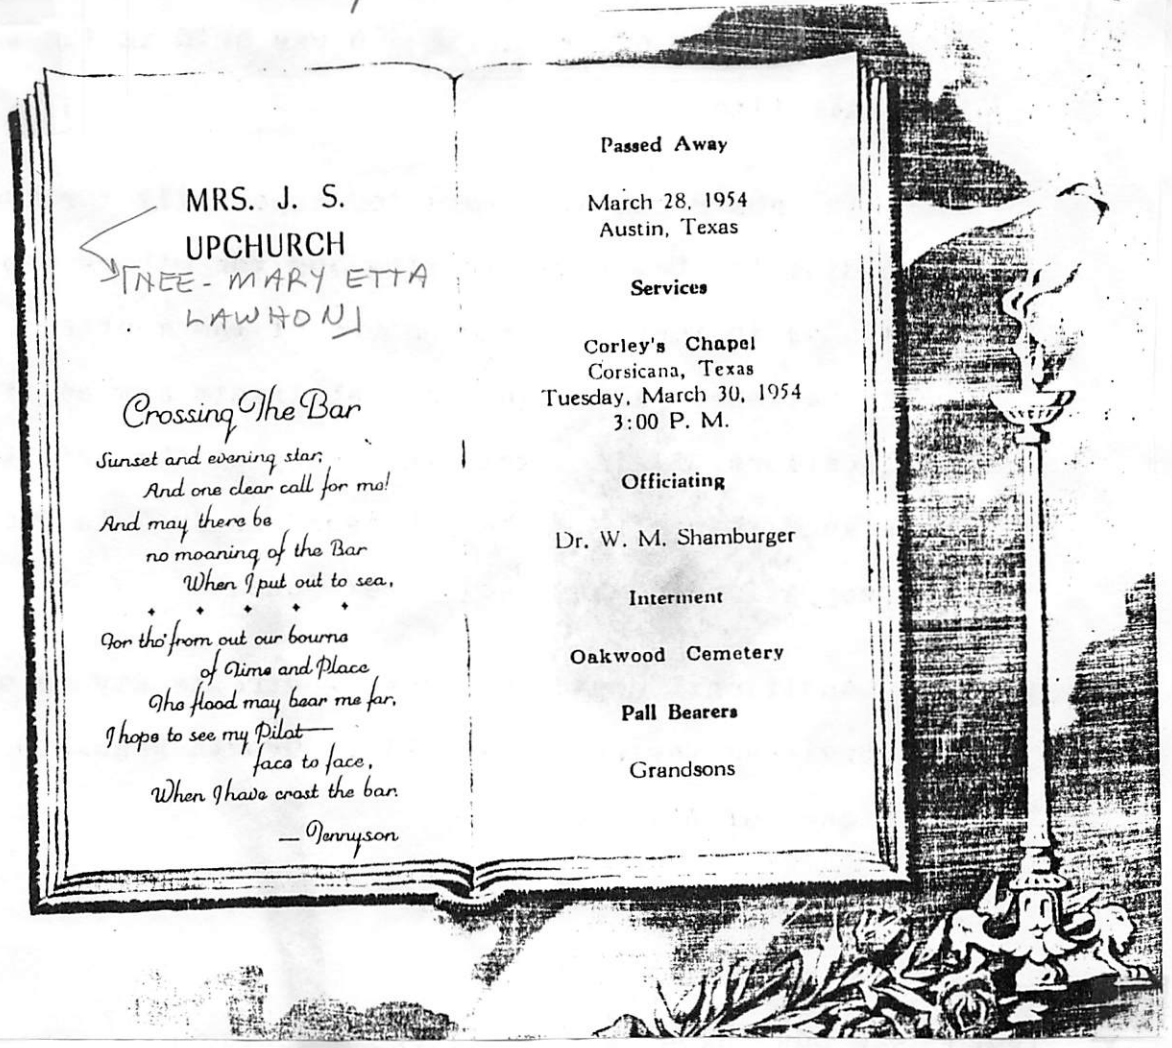 MRS. J. S.
UPCHURCH
[NEE - MARY ETTA
LAWHON]
Crossing The Bar
Sunset and evening star,
And one clear call for me!
And may there be
no moaning of the Bar
When I put out to sea,
For tho' from out our bourne
of Time and Place
The flood may bear me far,
I hope to see my Pilot—
face to face,
When I have crost the bar.
— Tennyson
Passed Away
March 28, 1954
Austin, Texas
Services
Corley's Chapel
Corsicana, Texas
Tuesday, March 30, 1954
3:00 P. M.
Officiating
Dr. W. M. Shamburger
Interment
Oakwood Cemetery
Pall Bearers
Grandsons